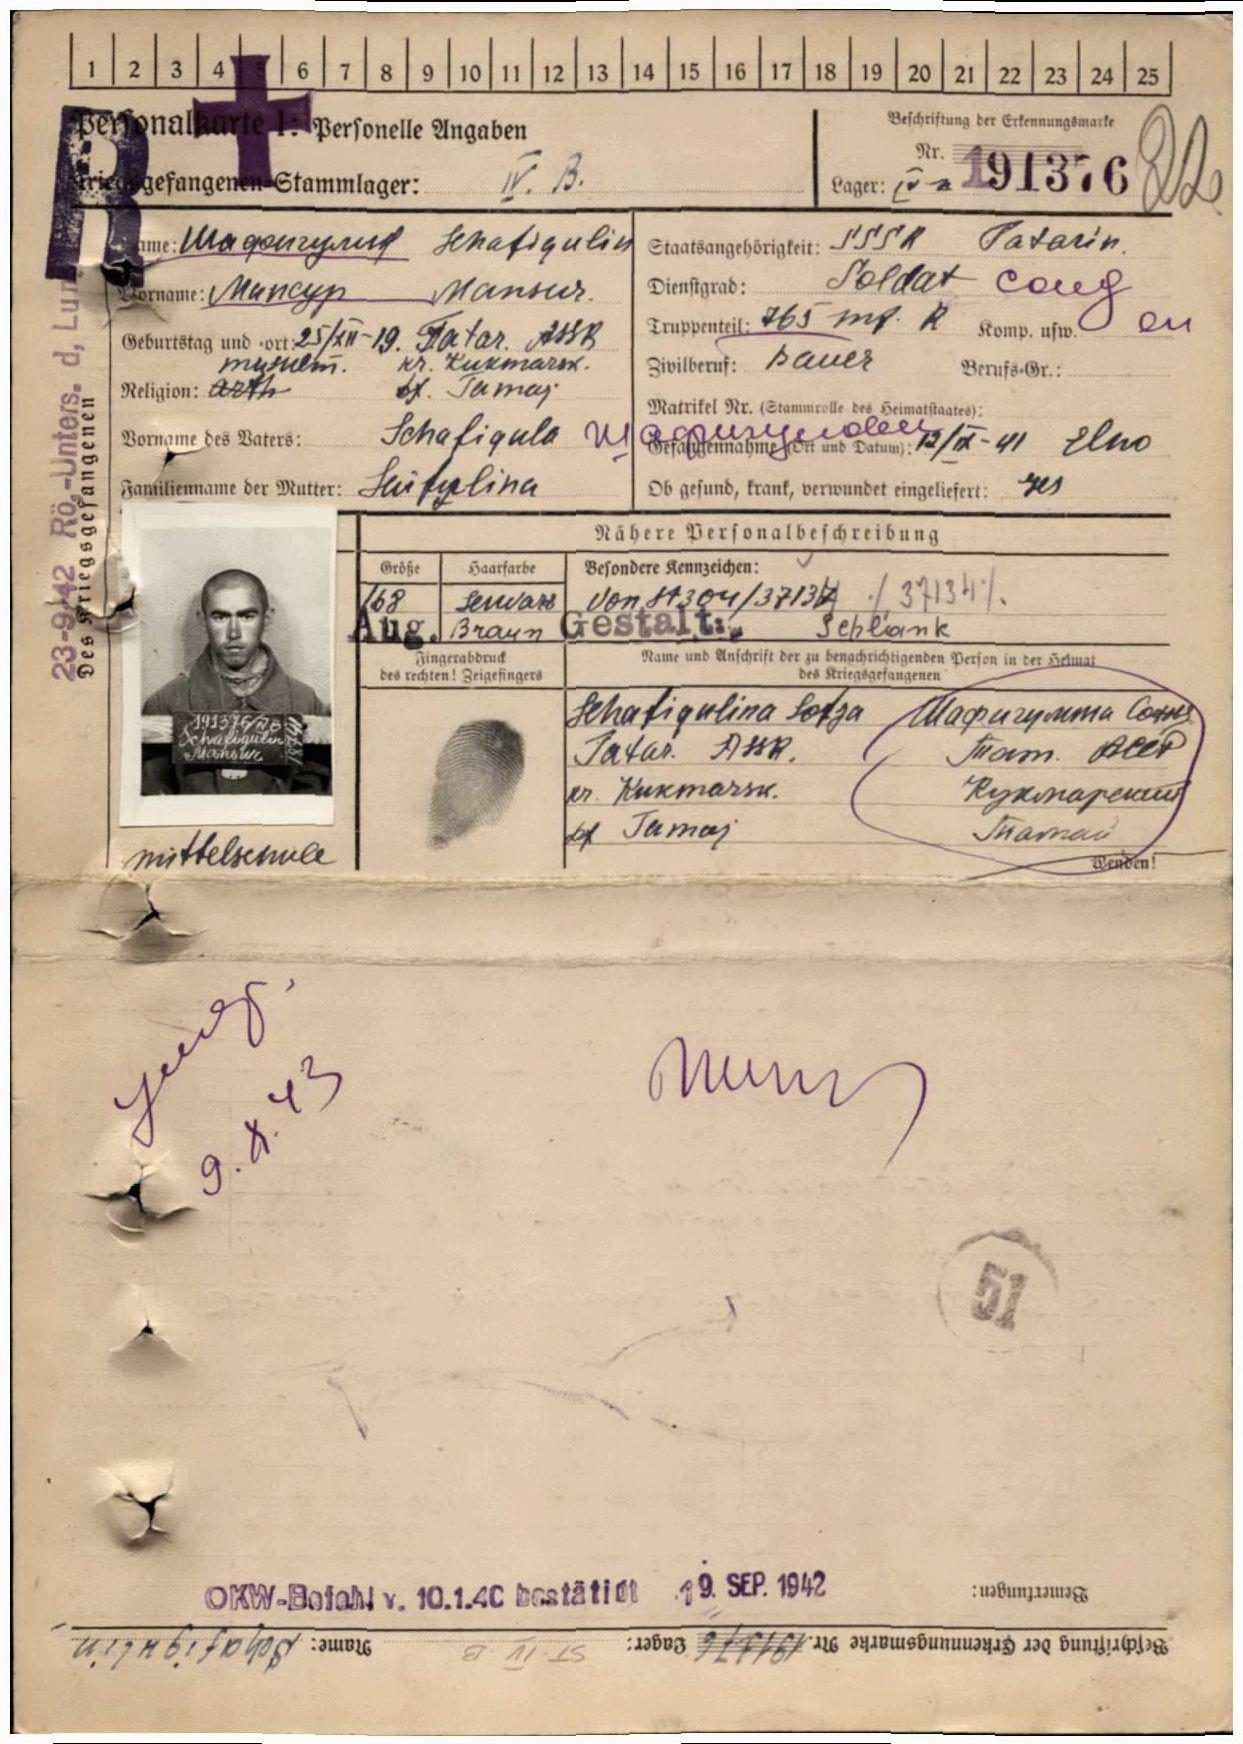 1 2 3 4 5 6 7 8 9 10 11 12 13 14 15 16 17 18 19 20 21 22 23 24 25
Personalkarte I: Personelle Angaben
Beschriftung der Erkennungsmarke
Kriegsgefangenen-Stammlager: IV. B.
Nr. 191376
Lager:
R
23-9/42 Rö.-Unters. d, Lun
Des Kriegsgefangenen
Name: Шафигулин Schafigulin
Vorname: Мансур Mansur.
Geburtstag und -ort: 25/XII-19. Tatar. ASSR
muselm. kr. Kukmarsk.
Religion: df. Jamaj
Vorname des Vaters: Schafigula Шафигуловец
Familienname der Mutter:
Staatsangehörigkeit: SSSR Tatarin.
Dienstgrad: Soldat солд
Truppenteil: 765 inf. R Komp. usw.
Zivilberuf: Bauer Berufs-Gr.:
Matrikel Nr. (Stammrolle des Heimatstaates):
Gefangennahme (Ort und Datum): 12/IX-41 Elno
Ob gesund, krank, verwundet eingeliefert: ges
Nähere Personalbeschreibung
Größe Haarfarbe Besondere Kennzeichen:
168 Schwarz Von St 304/37134 / 37134/.
Aug. Braun Gestalt: Schlank
Fingerabdruck
des rechten! Zeigefingers
Name und Anschrift der zu benachrichtigenden Person in der Heimat
des Kriegsgefangenen
Schafigulina Sofja Шафигулина София
Tatar. ASSR. Тат. АССР
kr. Kukmarsk. Кукмарский
df Jamaj
Wenden!
191376/IVB
Schafigulin
Mansur
mittelschule
9.X.43
51
OKW-Befehl v. 10.1.40 bestätigt 19. SEP. 1942
Bemerkungen:
Beschriftung der Erkennungsmarke Nr. 191376 Lager: ST. IV. B Name: Schafigulin